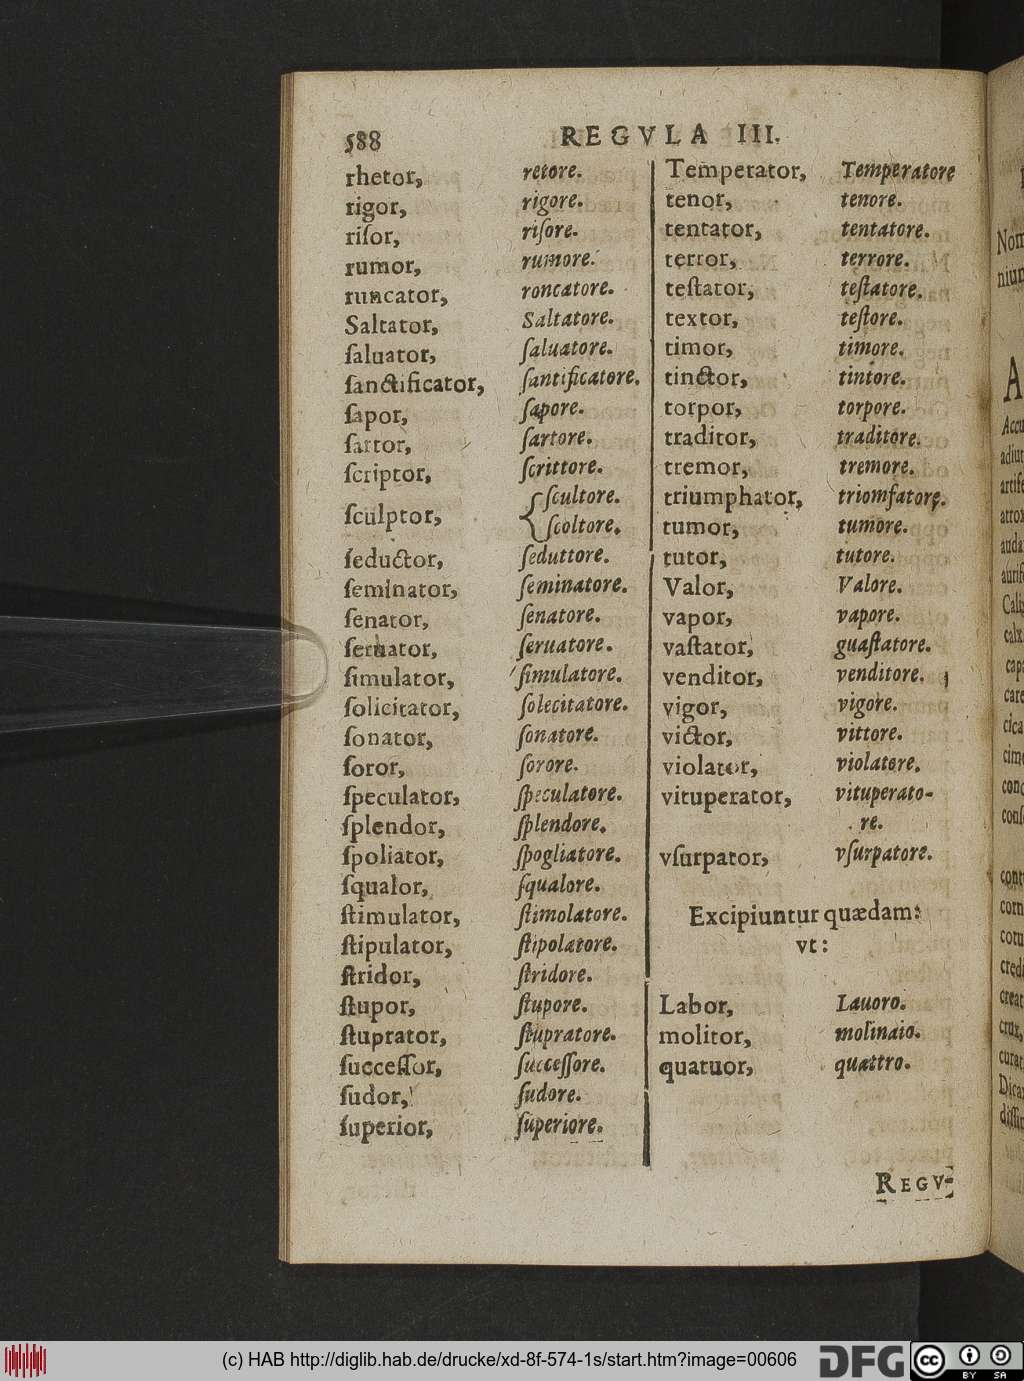 588 REGVLA III.
rhetor, retore.
rigor, rigore.
riſor, riſore.
rumor, rumore.
runcator, roncatore.
Saltator, Saltatore.
ſaluator, ſaluatore.
ſanctificator, ſantificatore.
ſapor, ſapore.
ſartor, ſartore.
ſcriptor, ſcrittore.
ſculptor, { ſcultore.
ſcoltore.
ſeductor, ſeduttore.
ſeminator, ſeminatore.
ſenator, ſenatore.
ſeruator, ſeruatore.
ſimulator, ſimulatore.
ſolicitator, ſolecitatore.
ſonator, ſonatore.
ſoror, ſorore.
ſpeculator, ſpeculatore.
ſplendor, ſplendore.
ſpoliator, ſpogliatore.
ſqualor, ſqualore.
ſtimulator, ſtimolatore.
ſtipulator, ſtipolatore.
ſtridor, ſtridore.
ſtupor, ſtupore.
ſtuprator, ſtupratore.
ſucceſſor, ſucceſſore.
ſudor, ſudore.
ſuperior, ſuperiore.
Temperator, Temperatore
tenor, tenore.
tentator, tentatore.
terror, terrore.
teſtator, teſtatore.
textor, teſtore.
timor, timore.
tinctor, tintore.
torpor, torpore.
traditor, traditore.
tremor, tremore.
triumphator, triomfatore.
tumor, tumore.
tutor, tutore.
Valor, Valore.
vapor, vapore.
vaſtator, guaſtatore.
venditor, venditore.
vigor, vigore.
victor, vittore.
violator, violatore.
vituperator, vituperato-
re.
vſurpator, vſurpatore.
Excipiuntur quædam:
vt:
Labor, Lauoro.
molitor, molinaio.
quatuor, quattro.
REGV-
(c) HAB http://diglib.hab.de/drucke/xd-8f-574-1s/start.htm?image=00606
DFG
cc BY SA